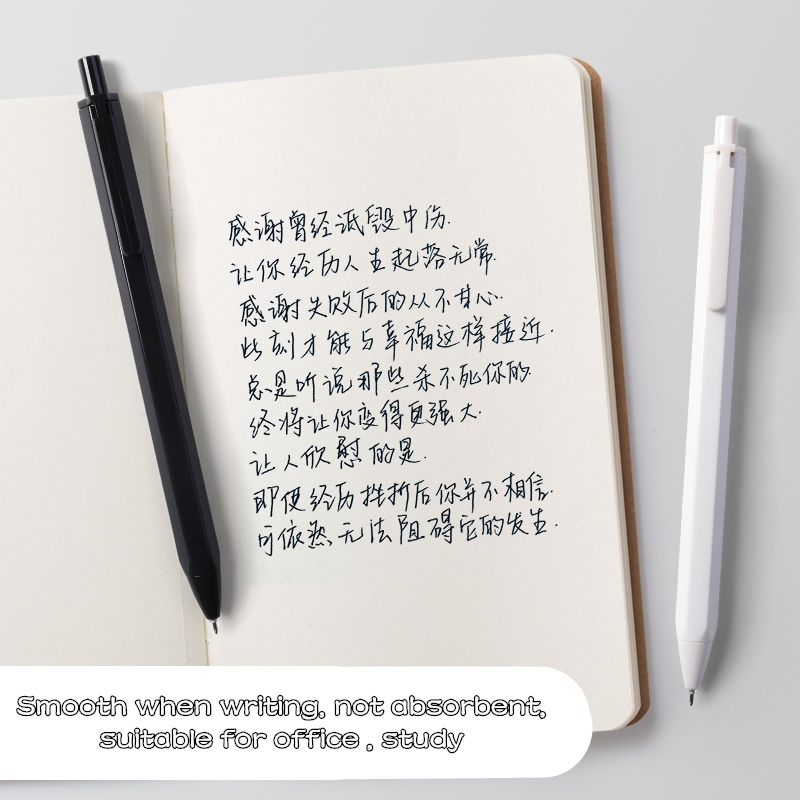 感谢曾经诋毁中伤.
让你经历人生起落无常.
感谢失败后的从不甘心.
此刻才能与幸福这样接近.
总是听说那些杀不死你的
终将让你变得更强大.
让人欣慰的是.
即使经历挫折后你并不相信.
可依然无法阻碍它的发生.
Smooth when writing, not absorbent,
suitable for office , study